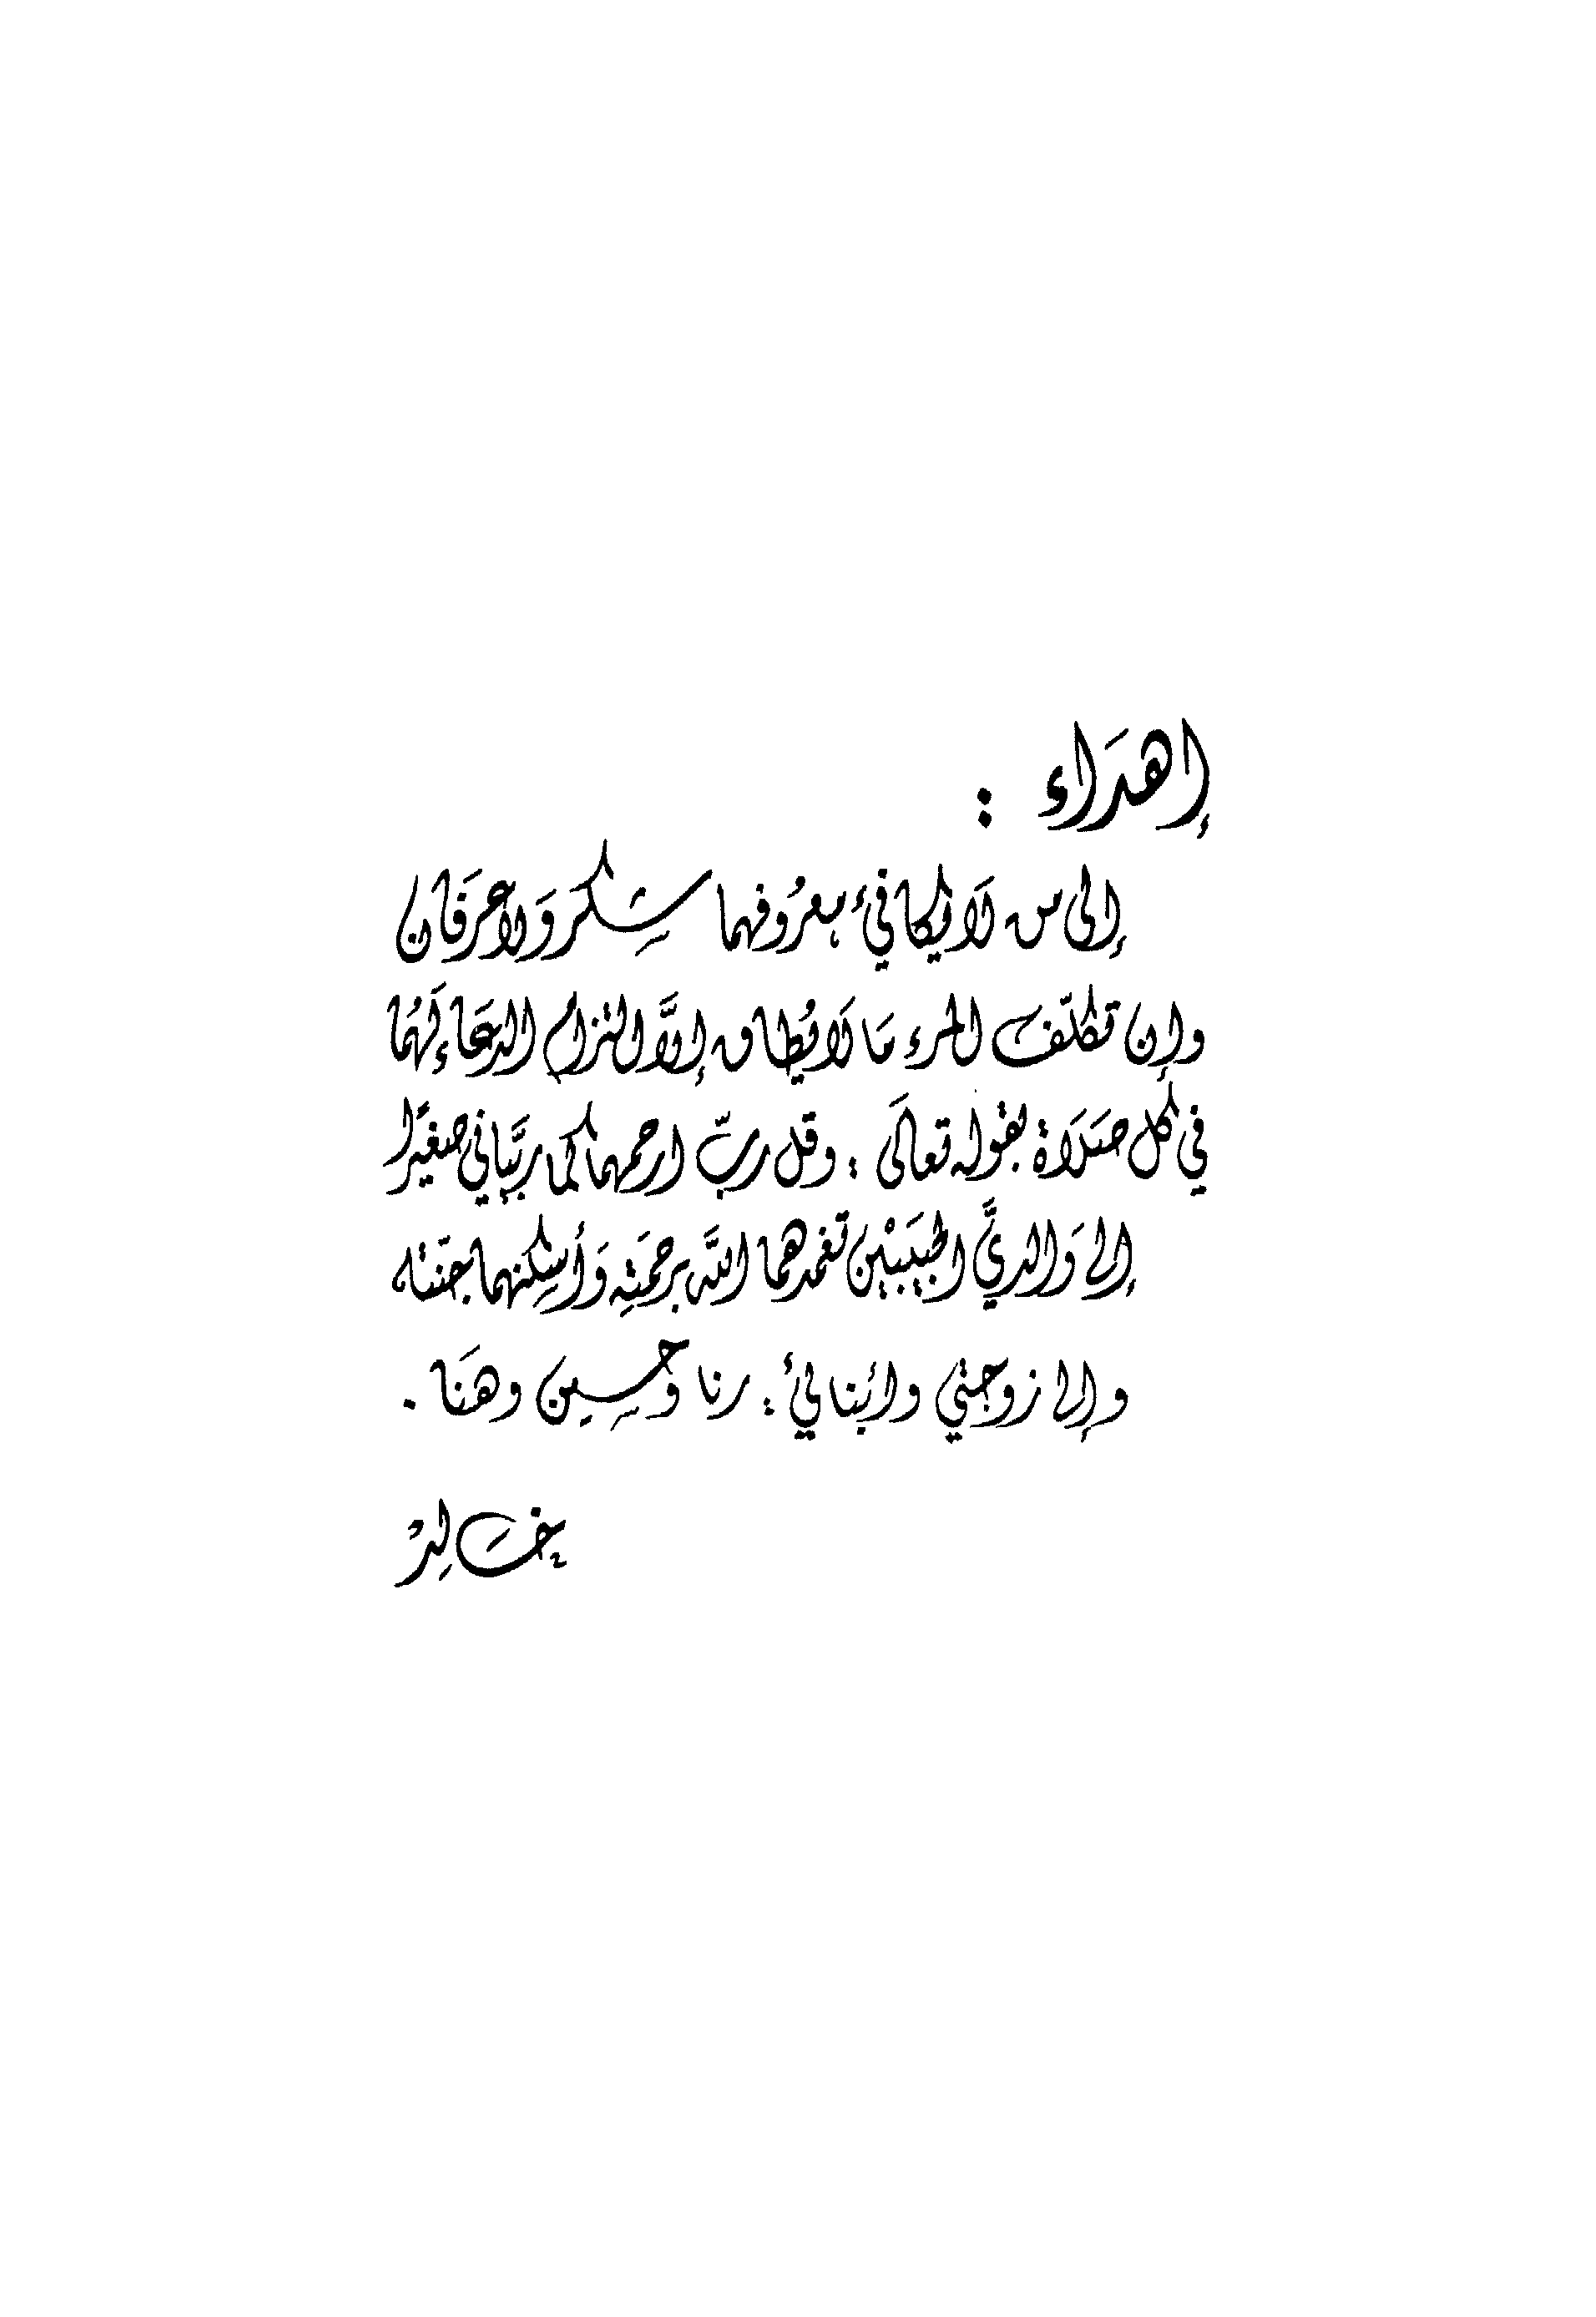 إهدَاء :
إلى من لَا يكافئ معرُوفهما شِكر وَلا عرَفَان
وإن تكلّف المرء مَا لَا يُطاق إلَّا التزام الدعَاء لَهُمَا
في كل صَلَاة بقوله تعالَى : وقل ربّ ارحمهما كما ربَّياني صغيرًا
إلى وَالديَّ الحبيبَيْن تغمدهما اللَّه برحمَتِه وَأسكنهما جنَته
وإلى زوجتي وأبنائي : رنا وَحسِين وهنَا .
خَالِدْ